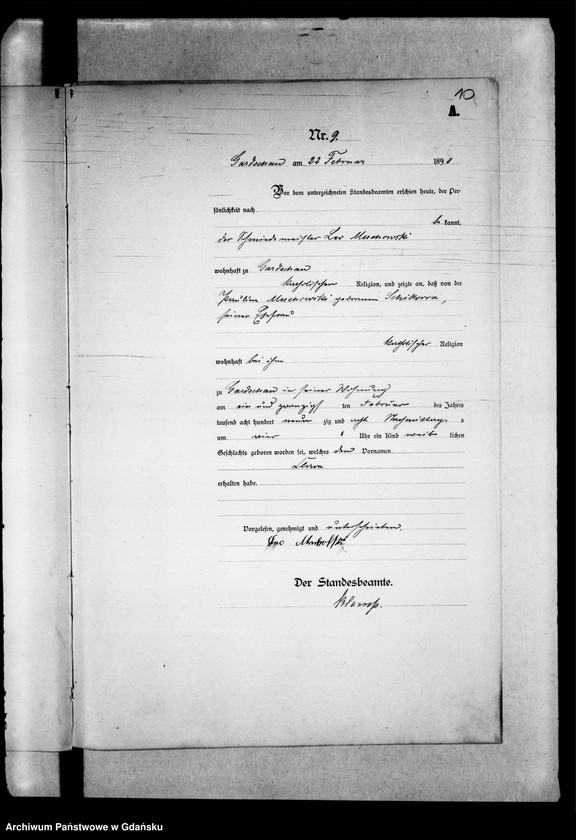 10
A.
Nr. 9.
Gardschau am 22 Februar 1898
Vor dem unterzeichneten Standesbeamten erschien heute, der Per-
sönlichkeit nach
be kannt,
der Schmiedemeister Leo
wohnhaft zu Gardschau
katholischen Religion, und zeigte an, daß von der
Pauline geborenen
seiner Ehefrau
katholischer Religion
wohnhaft bei ihm
zu Gardschau in seiner Wohnung
am ein und zwanzigsten Februar des Jahres
tausend acht hundert neun zig und acht Nachmittags
um vier Uhr ein Kind weib lichen
Geschlechts geboren worden sei, welches den Vornamen
erhalten habe.
Vorgelesen, genehmigt und unterschrieben.
Leo
Der Standesbeamte.
Archiwum Państwowe w Gdańsku